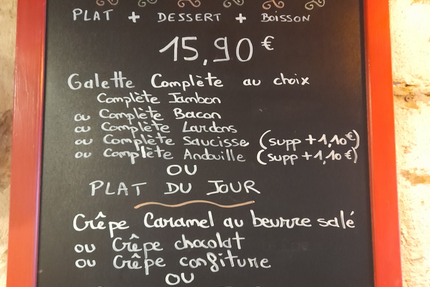 PLAT + DESSERT + BOISSON
15,90€
Galette Complète au choix
Complète Jambon
ou Complète Bacon
ou Complète Lardons
ou Complète Saucisse (supp +1,10€)
ou Complète Anduille (supp +1,10€)
OU
PLAT DU JOUR
Crêpe Caramel au beurre salé
ou Crêpe chocolat
ou Crêpe confiture
OU